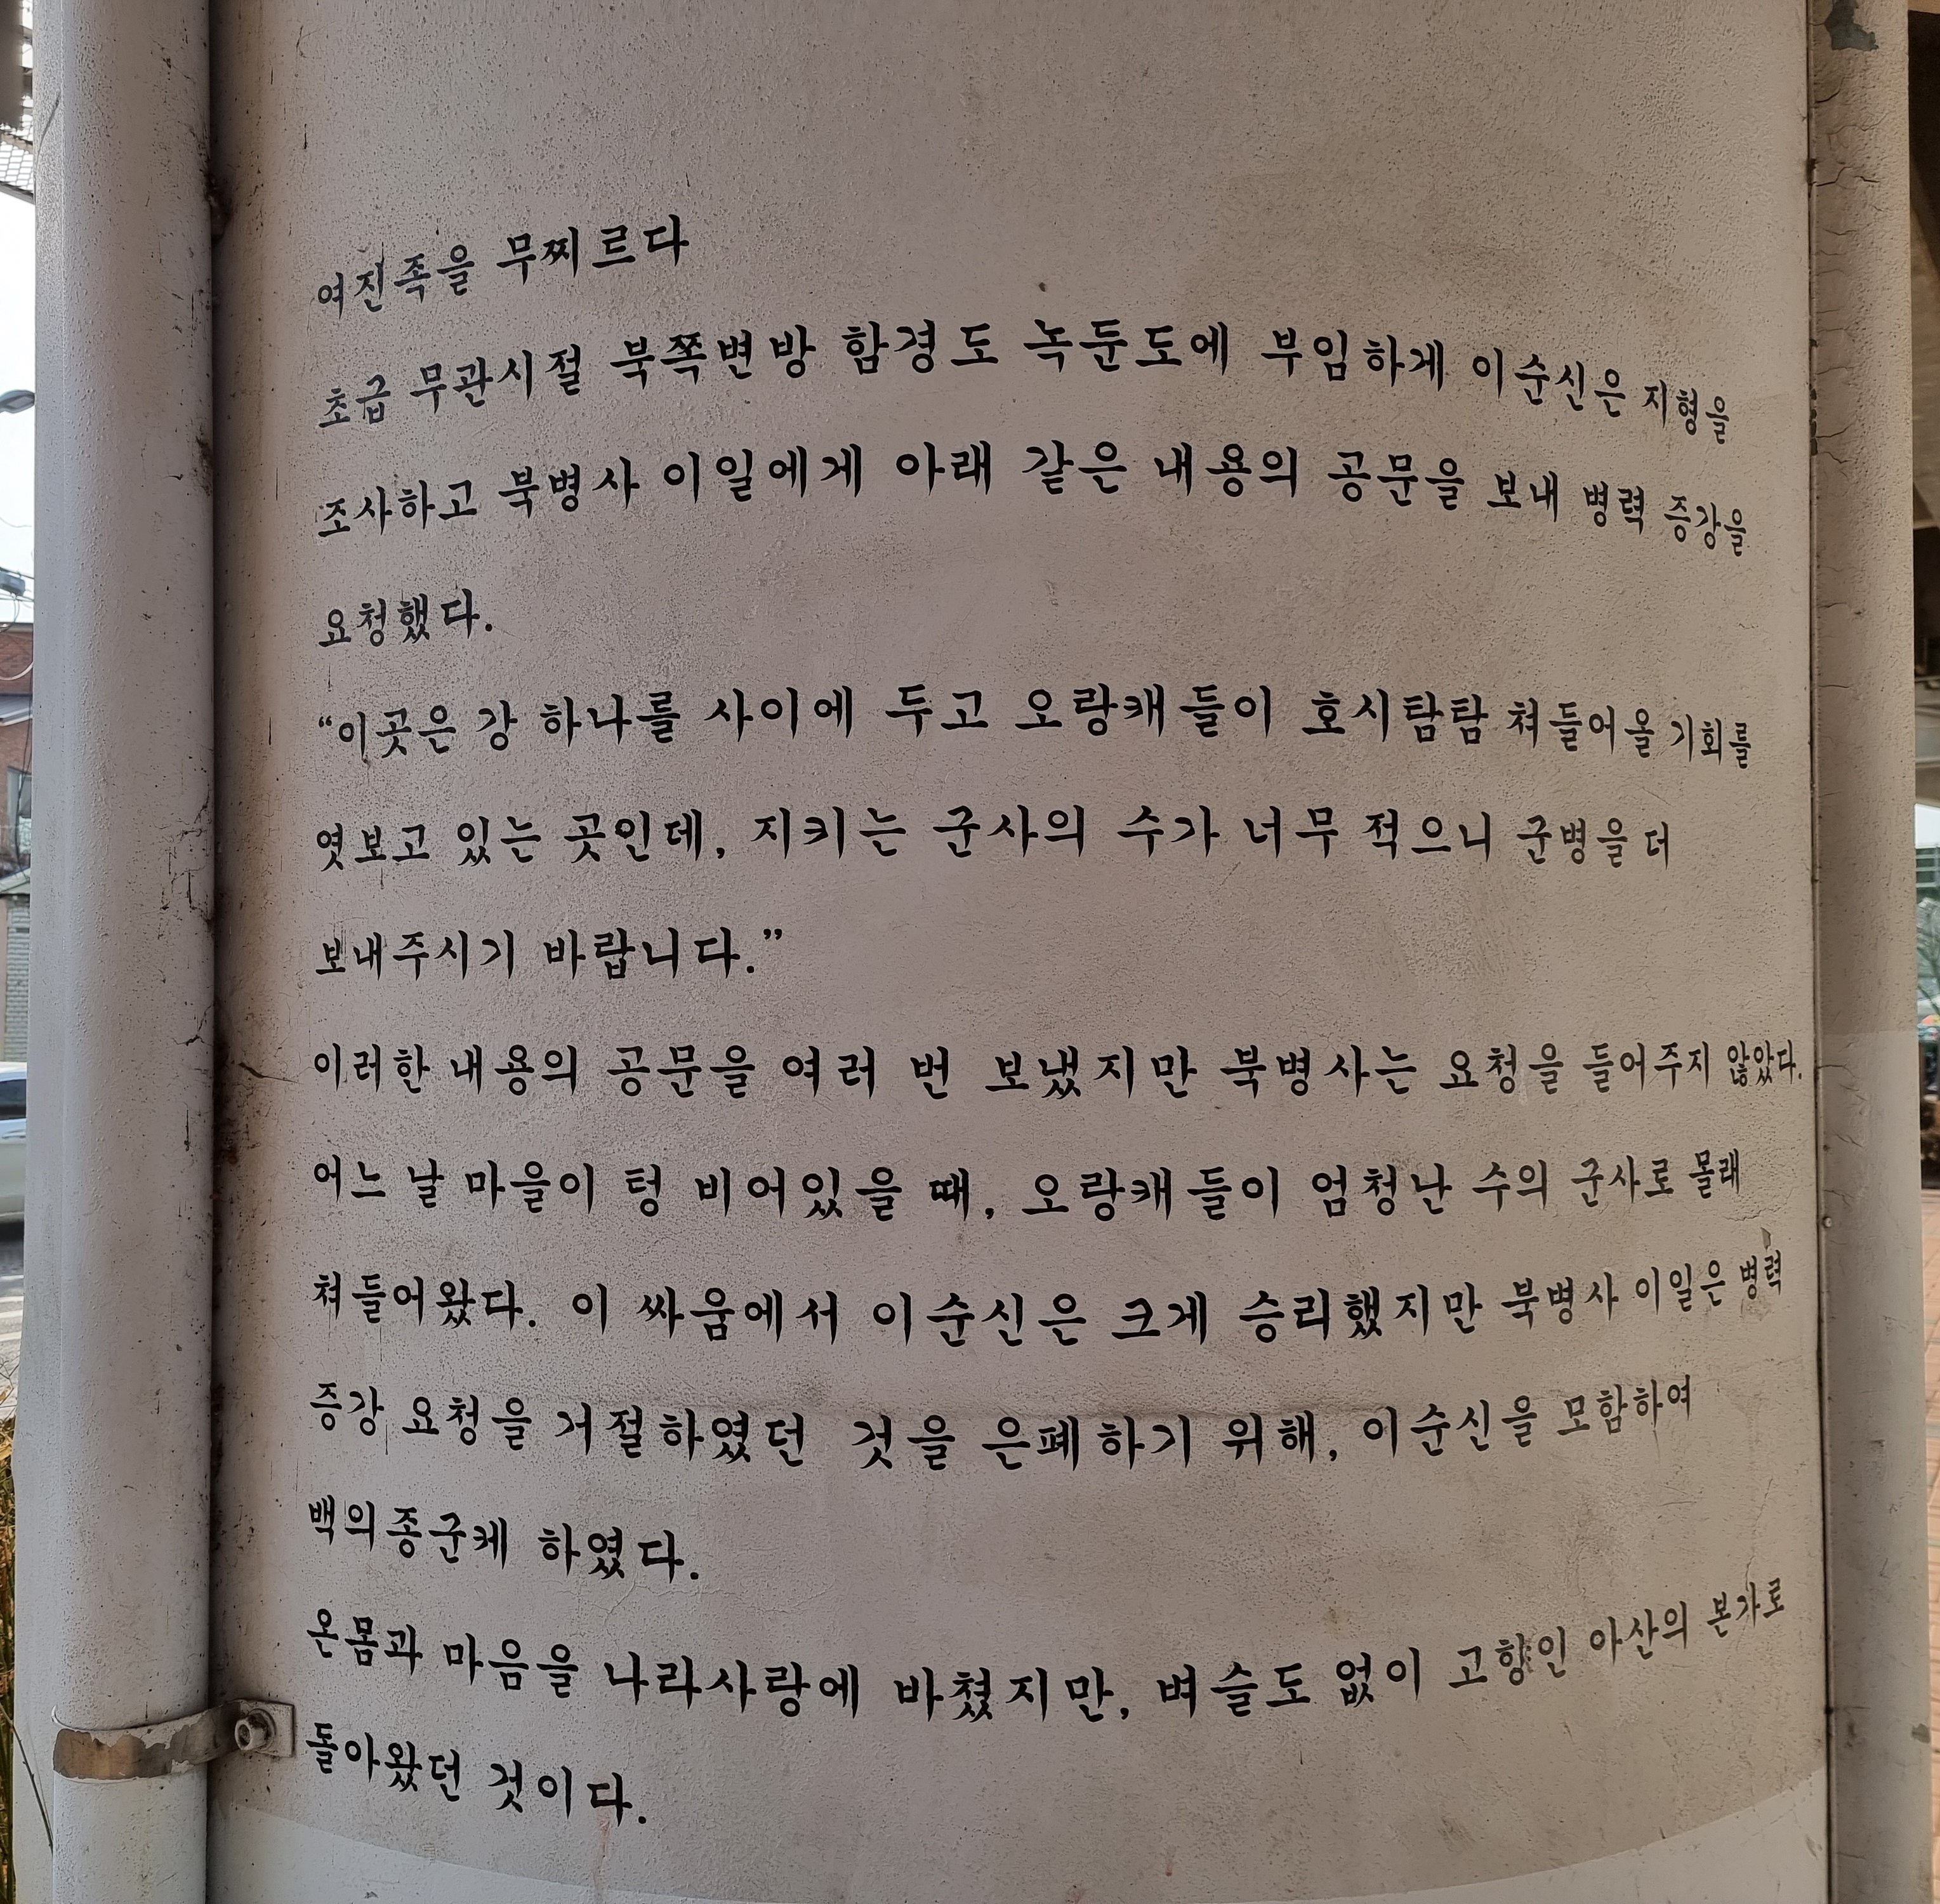 여진족을 무찌르다
초급 무관시절 북쪽변방 함경도 녹둔도에 부임하게 이순신은 지형을
조사하고 북병사 이일에게 아래 같은 내용의 공문을 보내 병력 증강을
요청했다.
“이곳은 강 하나를 사이에 두고 오랑캐들이 호시탐탐 쳐들어올 기회를
엿보고 있는 곳인데, 지키는 군사의 수가 너무 적으니 군병을 더
보내주시기 바랍니다.”
이러한 내용의 공문을 여러 번 보냈지만 북병사는 요청을 들어주지 않았다.
어느 날 마을이 텅 비어있을 때, 오랑캐들이 엄청난 수의 군사로 몰래
쳐들어왔다. 이 싸움에서 이순신은 크게 승리했지만 북병사 이일은 병력
증강 요청을 거절하였던 것을 은폐하기 위해, 이순신을 모함하여
백의종군케 하였다.
온몸과 마음을 나라사랑에 바쳤지만, 벼슬도 없이 고향인 아산의 본가로
돌아왔던 것이다.